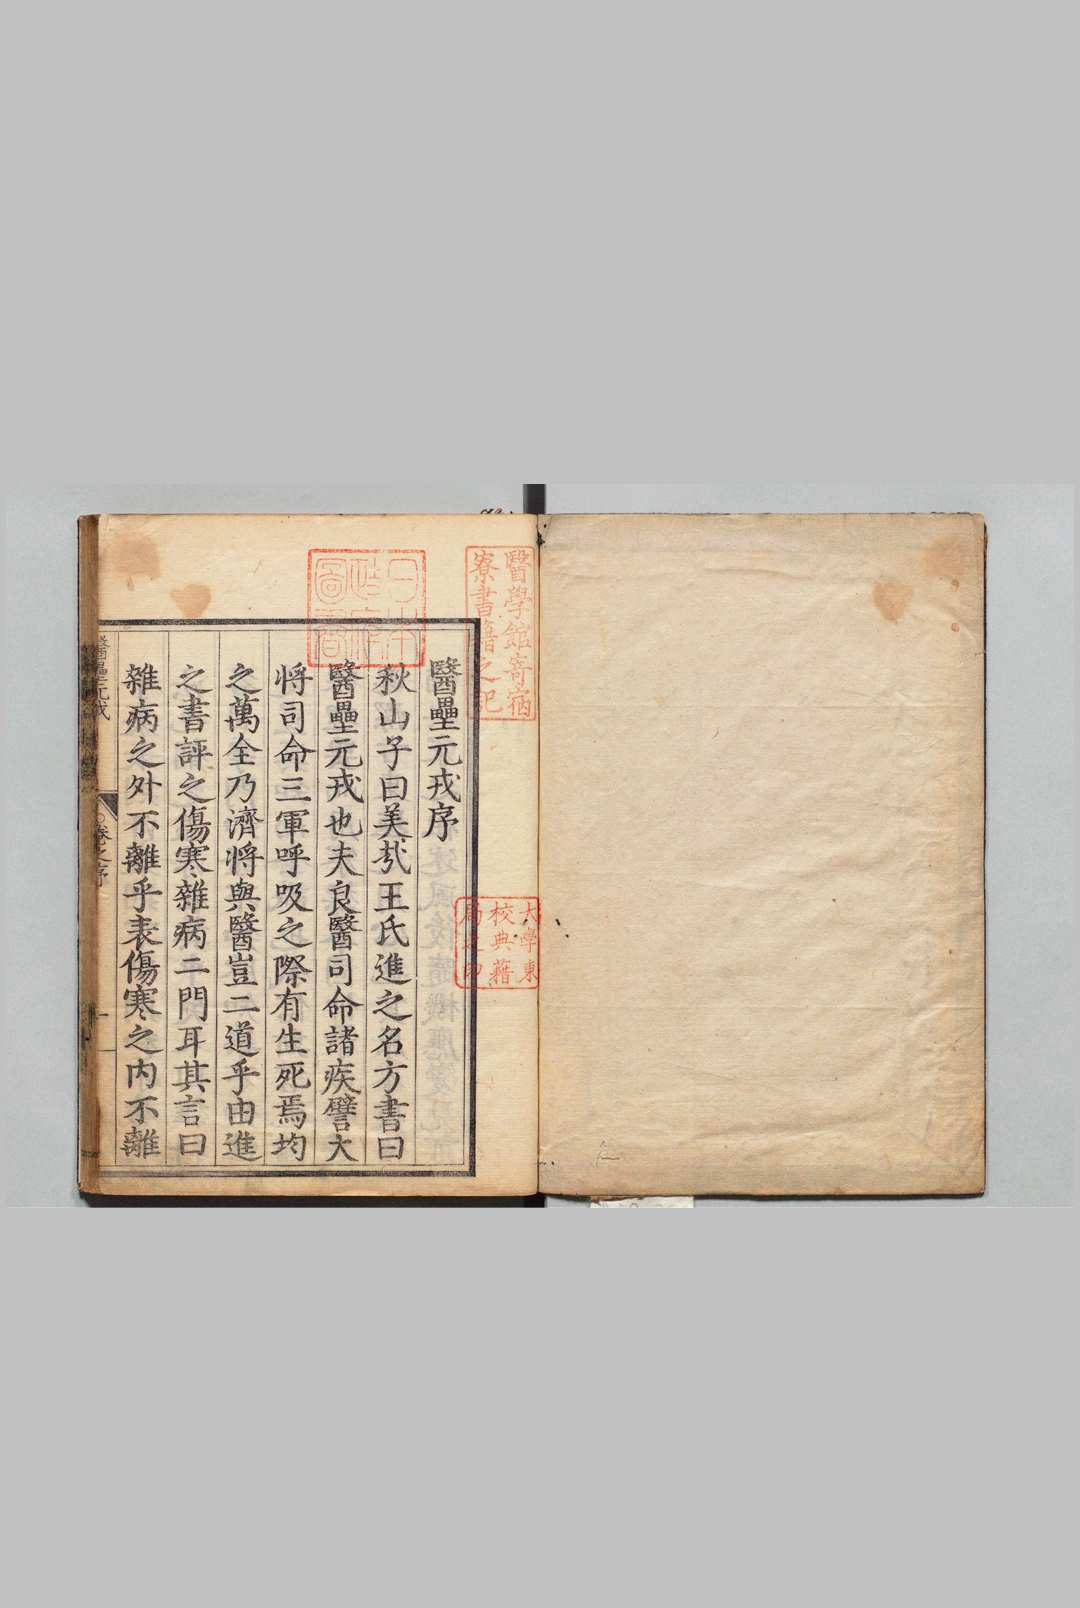 醫學館寄宿
寮書籍之記
日本
政府
圖書
大學東
校典籍
局之印
醫壘元戎序
秋山子曰美哉王氏進之名方書曰
醫壘元戎也夫良醫司命諸疾譬大
將司命三軍呼吸之際有生死焉均
之萬全乃濟將與醫豈二道乎由進
之書評之傷寒雜病二門耳其言曰
雜病之外不離乎表傷寒之內不離
醫壘元戎
卷之序
一